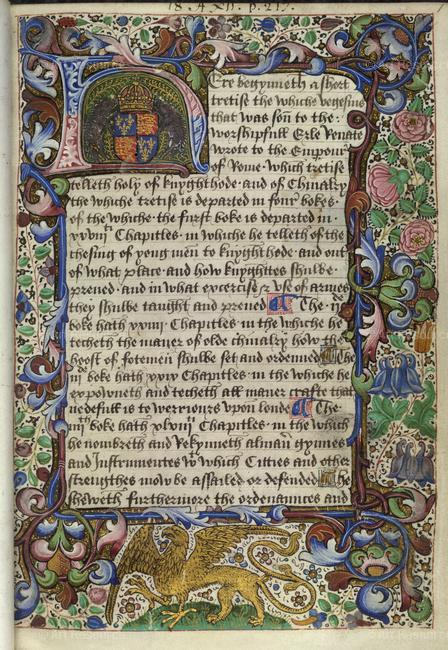 18. A XII. p. 217.
Here begynneth a short
tretise the whiche vegesius
that was son to the
worshipfull Erle Renate
wrote to the Emperour
of Rome · which tretise
telleth holy of knyghthode · and of Chiualry
the whiche tretise is departed in four bokes ·
of the whiche the first boke is departed in ·
xxviij Chapitles · in whiche he telleth of the
chesing of yong men to knyghthode · and out
of what place · and how knyghttes shulbe
preued · and in what excercise & vse of armes
they shulbe taught and preued The ij
boke hath xxiiij Chapitles · in the whiche he
techeth the maner of olde chiualry how the
hoost of fotemen shulbe set and ordenned The
iij boke hath xxvj Chapitles · in the whiche he
expowneth and techeth all maner crafte that
nedefull is to werriours vpon londe The
iiij boke hath xlviij Chapitles · in the which
he nombreth and Rekynneth alman gynnes
and Instrumentes wt which Cities and other
strengthes mow be assailed or defended He
sheweth furthermore the ordenaunces and